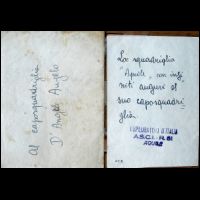 Al caposquadriglia
D'Angelo Angelo
La squadriglia
"Aquile", con infi-
niti auguri al
suo caposquadri-
glia.
ESPLORATORI D'ITALIA
A.S.C.I. - R.
AQUILE